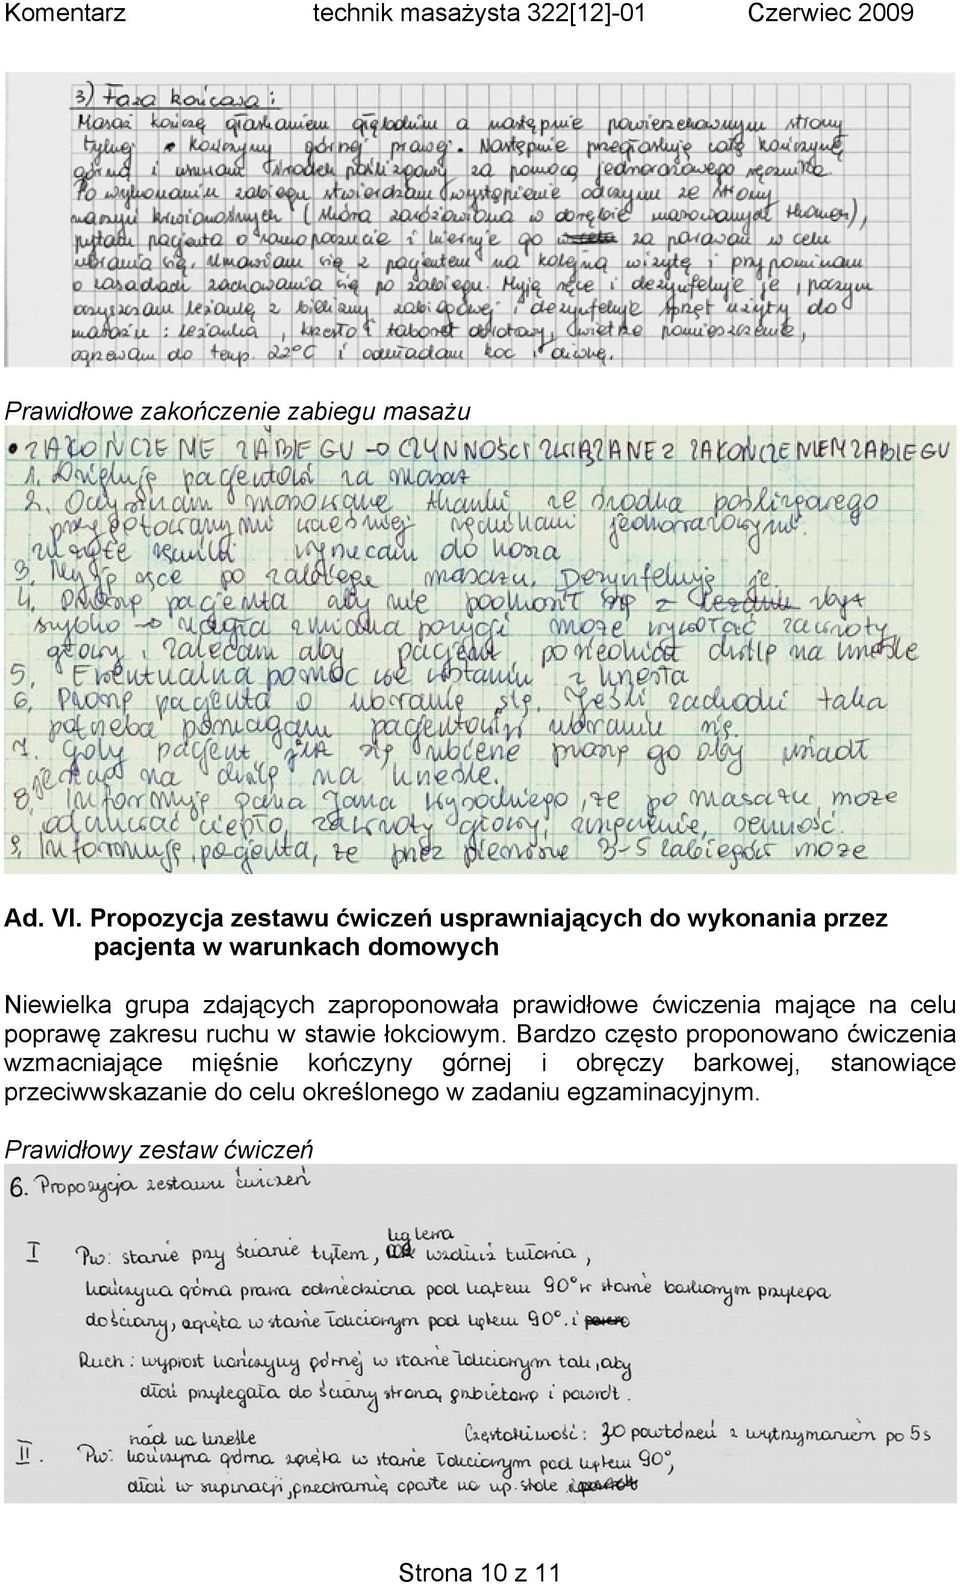 Komentarz technik masażysta 322[12]-01 Czerwiec 2009
3) Faza końcowa:
Masaż kończę głaskaniem głębokim a następnie powierzchownym strony
tylnej kończyny górnej prawej. Następnie przegłaskuję całą kończynę
górną i usuwam środek poślizgowy za pomocą jednorazowego ręcznika.
Po wykonaniu zabiegu stwierdzam wystąpienie odczynu ze strony
naczyń krwionośnych (skóra zaróżowiona w obrębie masowanych tkanek),
pytam pacjenta o samopoczucie i kieruje go za parawan w celu
ubrania się, Umawiam się z pacjentem na kolejną wizytę i przypominam
o zasadach zachowania się po zabiegu. Myję ręce i dezynfekuje je, poczym
oczyszczam leżankę z bielizny zabiegowej i dezynfekuje sprzęt użyty do
masażu: leżanka, krzesło i taboret obrotowy, wietrze pomieszczenie,
ogrzewam do temp. 22°C i odkładam koc i oliwkę.
Prawidłowe zakończenie zabiegu masażu
• ZAKOŃCZENIE ZABIEGU → CZYNNOŚCI ZWIĄZANE Z ZAKOŃCZENIEM ZABIEGU
1. Dziękuję pacjentowi za masaż
2. Oczyszczam masowane tkanki ze środka poślizgowego
przygotowanymi wcześniej ręcznikami jednorazowymi.
zużyte ręczniki wyrzucam do kosza
3. Myję ręce po zabiegu masażu. Dezynfekuję je.
4. Proszę pacjenta aby nie podnosił się z zbyt
szybko → nagła zmiana pozycji może wywołać zawroty
głowy i zalecam aby pacjent posiedział chwilę na krześle
5. Ewentualna pomoc we wstaniu z krzesła
6. Proszę pacjenta o ubranie się. Jeśli zachodzi taka
potrzeba pomagam pacjentowi w ubraniu się.
7. Gdy pacjent już się ubierze proszę go aby usiadł
jeszcze na chwilę na krześle.
8. Informuję pana Jana Wysockiego, że po masażu może
odczuwać ciepło, zawroty głowy, zmęczenie, senność.
9. Informuję pacjenta, że przez pierwsze 3-5 zabiegów może
Ad. VI. Propozycja zestawu ćwiczeń usprawniających do wykonania przez
pacjenta w warunkach domowych
Niewielka grupa zdających zaproponowała prawidłowe ćwiczenia mające na celu
poprawę zakresu ruchu w stawie łokciowym. Bardzo często proponowano ćwiczenia
wzmacniające mięśnie kończyny górnej i obręczy barkowej, stanowiące
przeciwwskazanie do celu określonego w zadaniu egzaminacyjnym.
Prawidłowy zestaw ćwiczeń
6. Propozycja zestawu ćwiczeń
I Pw: stanie przy ścianie tyłem, kg lewa wzdłuż tułowia,
kończyna górna prawa odwiedziona pod kątem 90° w stawie barkowym przylega
do ściany, zgięta w stawie łokciowym pod kątem 90°. i
Ruch: wyprost kończyny górnej w stawie łokciowym tak, aby
dłoń przylegała do ściany stroną grzbietową i powrót.
Częstotliwość: 30 powtórzeń z wytrzymaniem po 5s
II. Pw: siad na krześle kończyna górna zgięta w stawie łokciowym pod kątem 90°,
dłoń w supinacji, przedramię oparte na np. stole
Strona 10 z 11